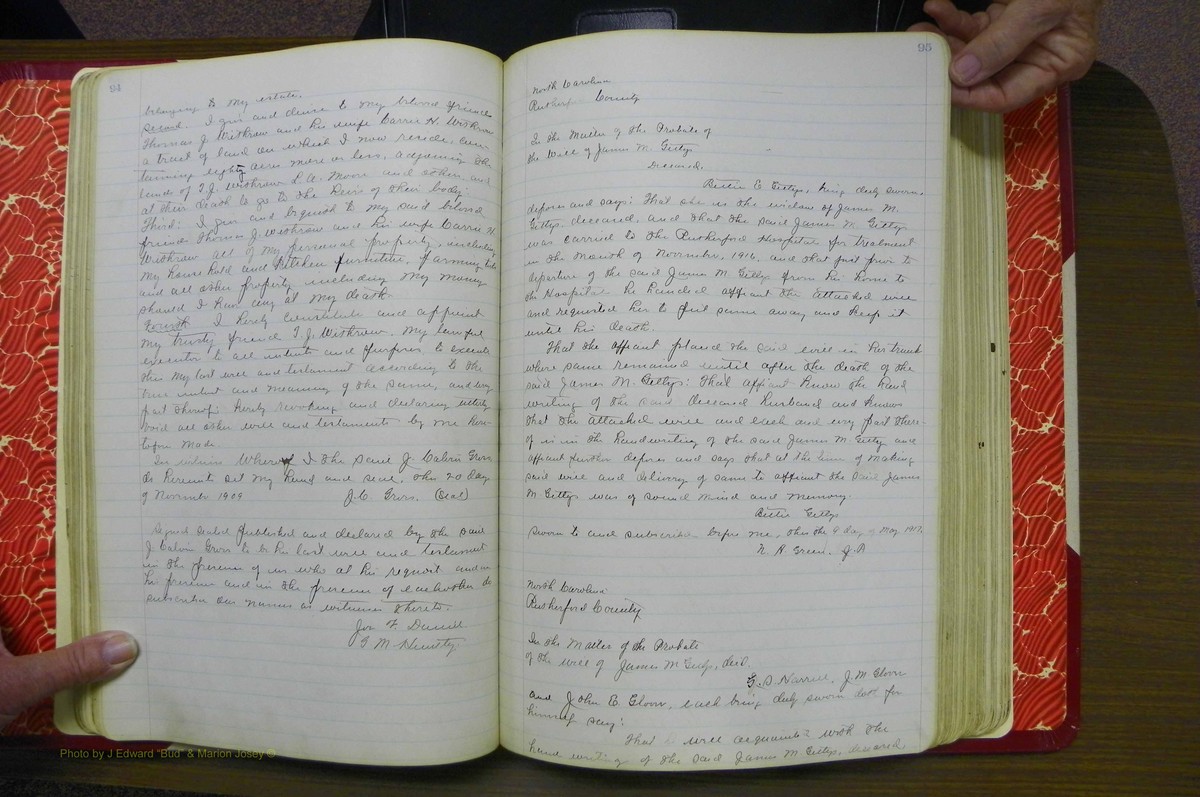 94
belonging to my estate.
Second. I give and devise to my beloved friends
Thomas J. Withrow and his wife Carrie H. Withrow
a tract of land on which I now reside, con-
taining eighty acres more or less, adjoining the
lands of T.J. Withrow, P.A. Moore and others, and
at their death to go to the Heirs of their body.
Third: I give and bequeath to my said beloved
friends Thomas J. Withrow and his wife Carrie H.
Withrow all of my personal property, including
my house hold and kitchen furniture, farming tools
and all other property including my money
should I have any at my death.
Fourth I hereby constitute and appoint
my trusty friend T J. Withrow, my lawful
executor to all intents and purposes to execute
this my last will and testament according to the
true intent and meaning of the same, and every
part thereof: hereby revoking and declaring utterly
void all other wills and testaments by me here-
tofore made.
In witness Whereof I the said J. Calvin Gross
do hereunto set my hand and seal, this 20 day
of November 1909 J.C. Gross. (Seal)
Signed sealed published and declared by the said
J Calvin Gross to be his last will and testament
in the presence of us who at his request and in
his presence and in the presence of each other do
subscribe our names as witnesses thereto.
Jos F.
G M Huntley
95
North Carolina
Rutherford County
In the Matter of the Probate of
the Will of James M. Gettys
Deceased.
Bettie E Gettys, being duly sworn
deposes and says: That she is the widow of James M.
Gettys, deceased, and that the said James M. Gettys
was carried to the Rutherford Hospital for treatment
in the month of November, 1916, and that just prior to
departure of the said James M. Gettys from his home to
the Hospital he handed affiant the attached will
and requested her to put same away and keep it
until his death.
That the affiant placed the said will in her trunk
where same remained until after the death of the
said James M. Gettys: That affiant know the hand
writing of the said deceased husband and knows
that the attached will and each and every part there-
of is in the handwriting of the said James M. Getty and
affiant further deposes and says that at the time of making
said will and delivery of same to affiant the said James
M Gettys was of sound mind and memory.
Bettie Gettys
Sworn to and subscribe before me, this the 9 day of May 1917.
N. R Green. J.P
North Carolina
Rutherford County
In the Matter of the Probate
of the will of James M Gettys, decd.
G. D. Harrill, J. M Glover
and John E Glover, each being duly sworn doth for
himself say:
That is well acquainted with the
hand writing of the said James M Gettys, deceased,
Photo by J Edward "Bud" & Marion Josey ©